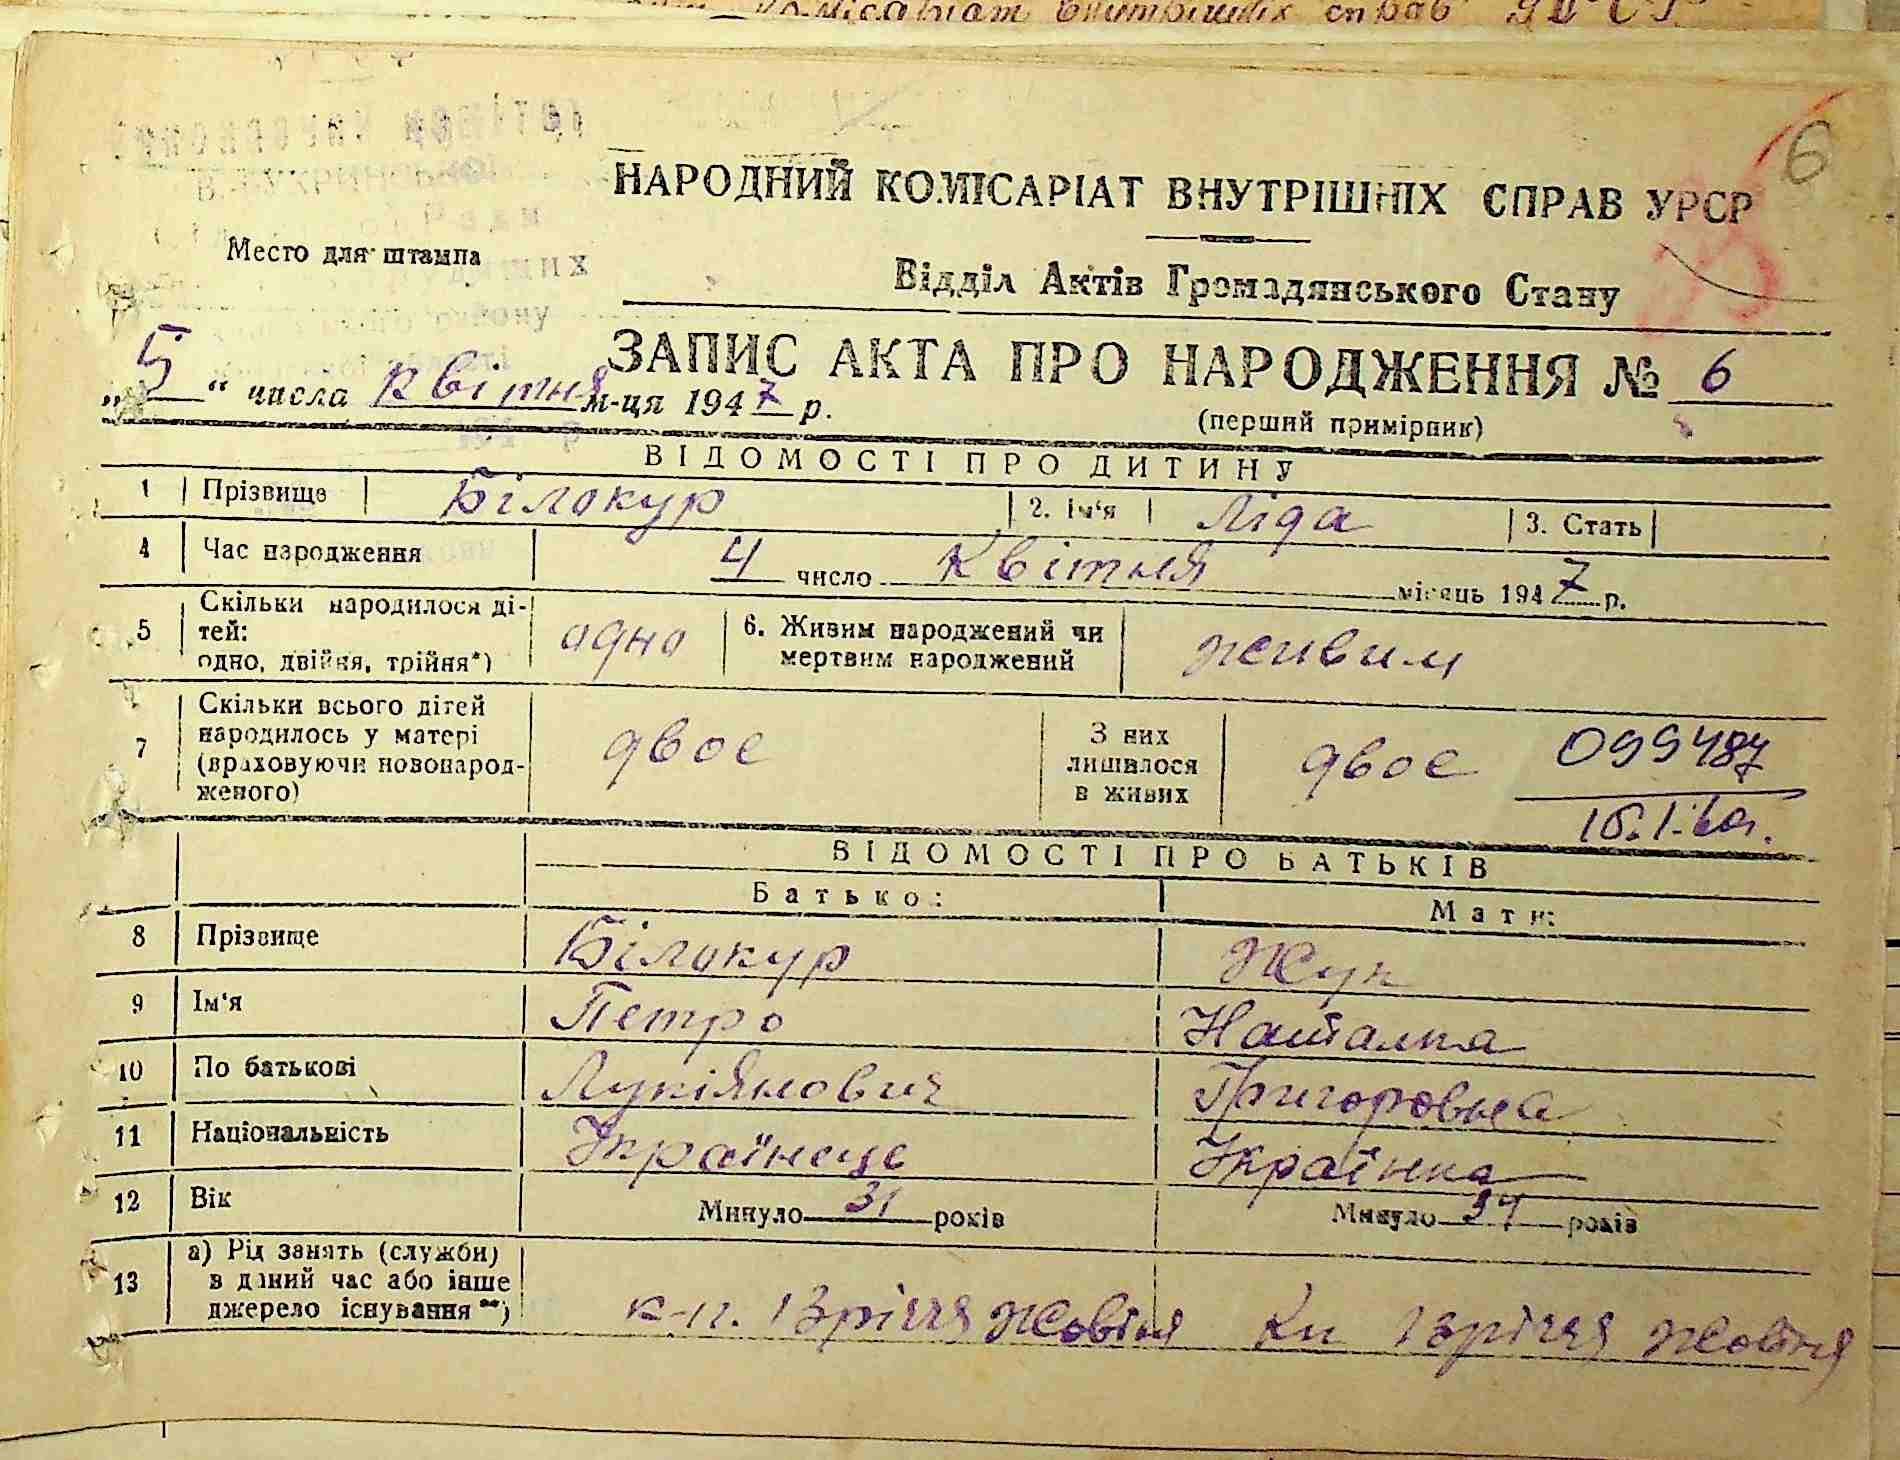 6
НАРОДНИЙ КОМІСАРІАТ ВНУТРІШНІХ СПРАВ УРСР
Место для штампа
Відділ Актів Громадянського Стану
ЗАПИС АКТА ПРО НАРОДЖЕННЯ № 6
„5“ числа квітня м-ця 1947 р.
(перший примірник)
ВІДОМОСТІ ПРО ДИТИНУ
1 Прізвище Білокур 2. Ім'я Ліда 3. Стать
4 Час народження 4 число Квітня місяць 1947 р.
5 Скільки народилося ді-
тей:
одно, двійня, трійня*)
одно
6. Живим народжений чи
мертвим народжений
живим
7 Скільки всього дітей
народилось у матері
(враховуючи новонарод-
женого)
двоє
З них
лишилося
в живих
двоє
099487
ВІДОМОСТІ ПРО БАТЬКІВ
Батько: Мати:
8 Прізвище Білокур Жук
9 Ім'я Петро Наталка
10 По батькові Лукіянович Григоровна
11 Національність Українець Українка
12 Вік Минуло 31 років Минуло 34 років
13 а) Рід занять (служби)
в даний час або інше
джерело існування**)
к-п. 13 річчя Жовтня Кп 13 річчя Жовтня